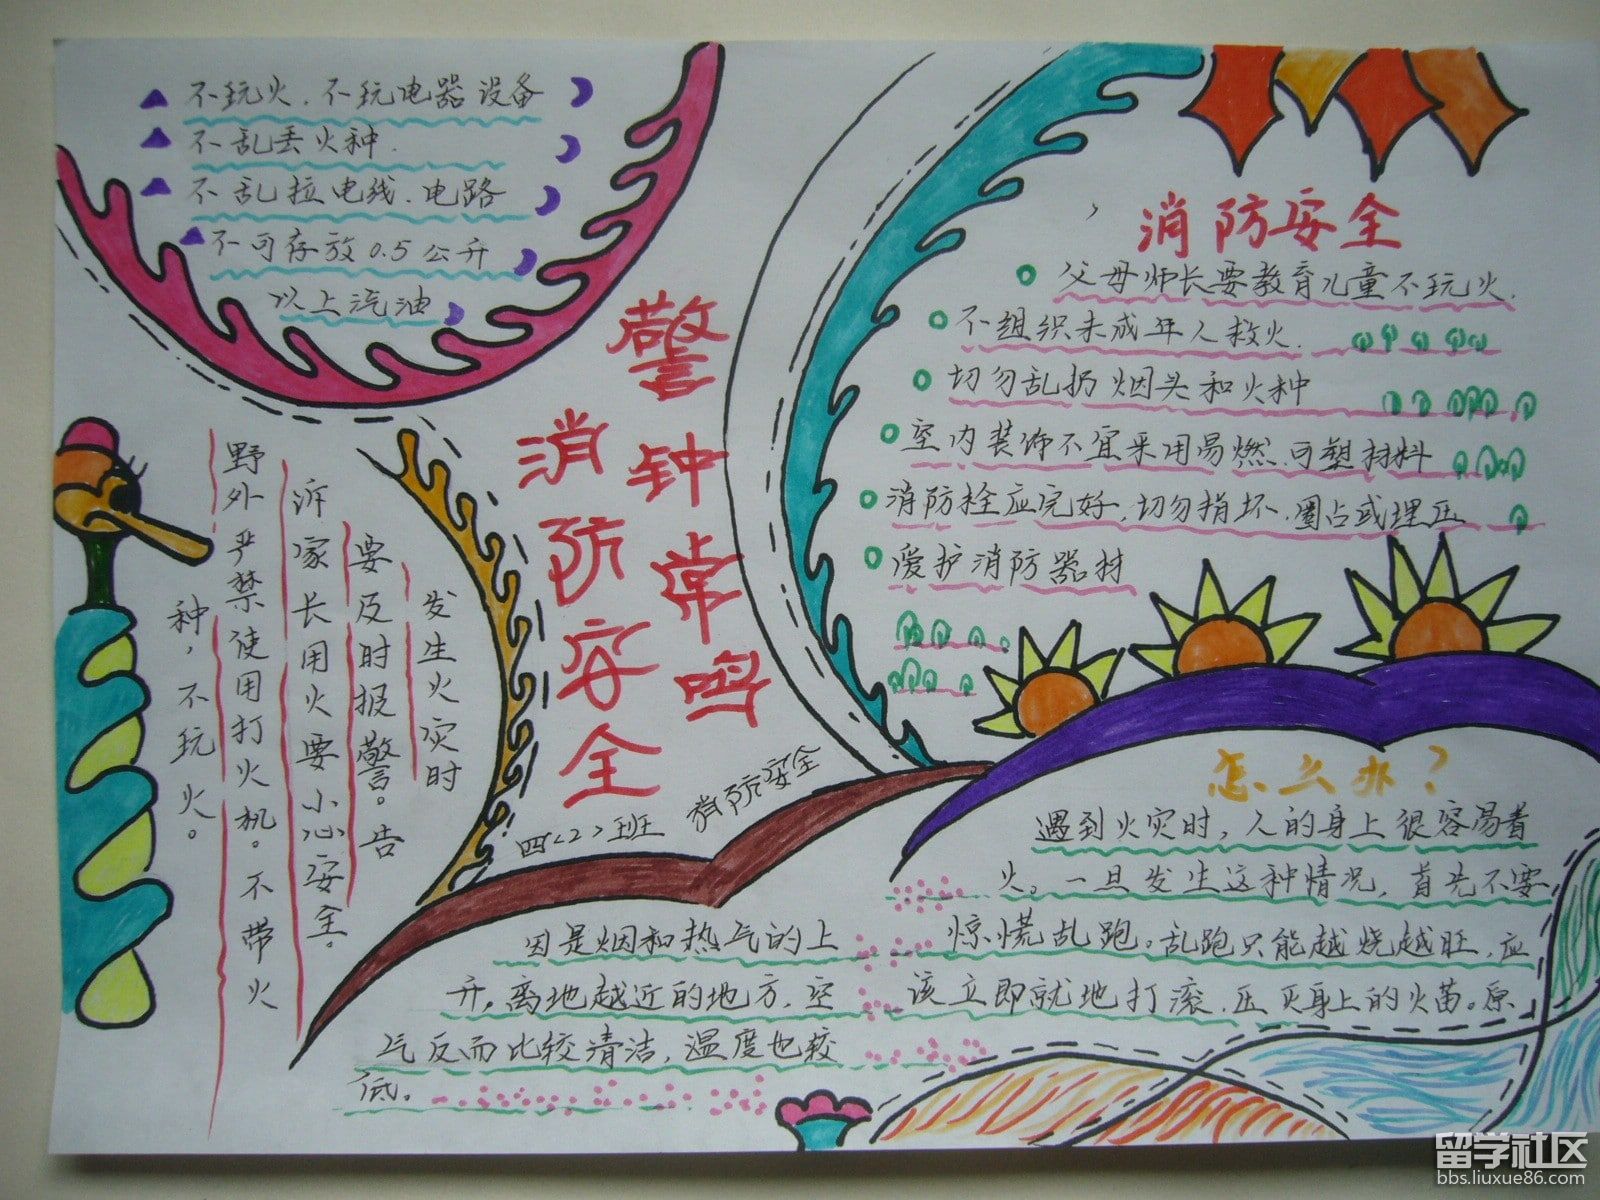 不玩火、不玩电器设备
不乱丢火种.
不乱拉电线、电路
不可存放0.5公升
以上汽油
警钟常鸣
消防安全
四<2>班
消防安全
发生火灾时
要及时报警。告
诉家长用火要小心安全。
野外严禁使用打火机。不带火
种，不玩火。
消防安全
父母师长要教育儿童不玩火.
不组织未成年人救火.
切勿乱扔烟头和火种
室内装饰不宜采用易燃、可塑材料
消防栓应完好，切勿损坏、圈占或埋压
爱护消防器材
怎么办？
遇到火灾时，人的身上很容易着
火。一旦发生这种情况，首先不要
惊慌乱跑。乱跑只能越烧越旺，应
该立即就地打滚，压灭身上的火苗。原
因是烟和热气的上
升，离地越近的地方，空
气反而比较清洁，温度也较
低。
留学社区
bbs.liuxue86.com